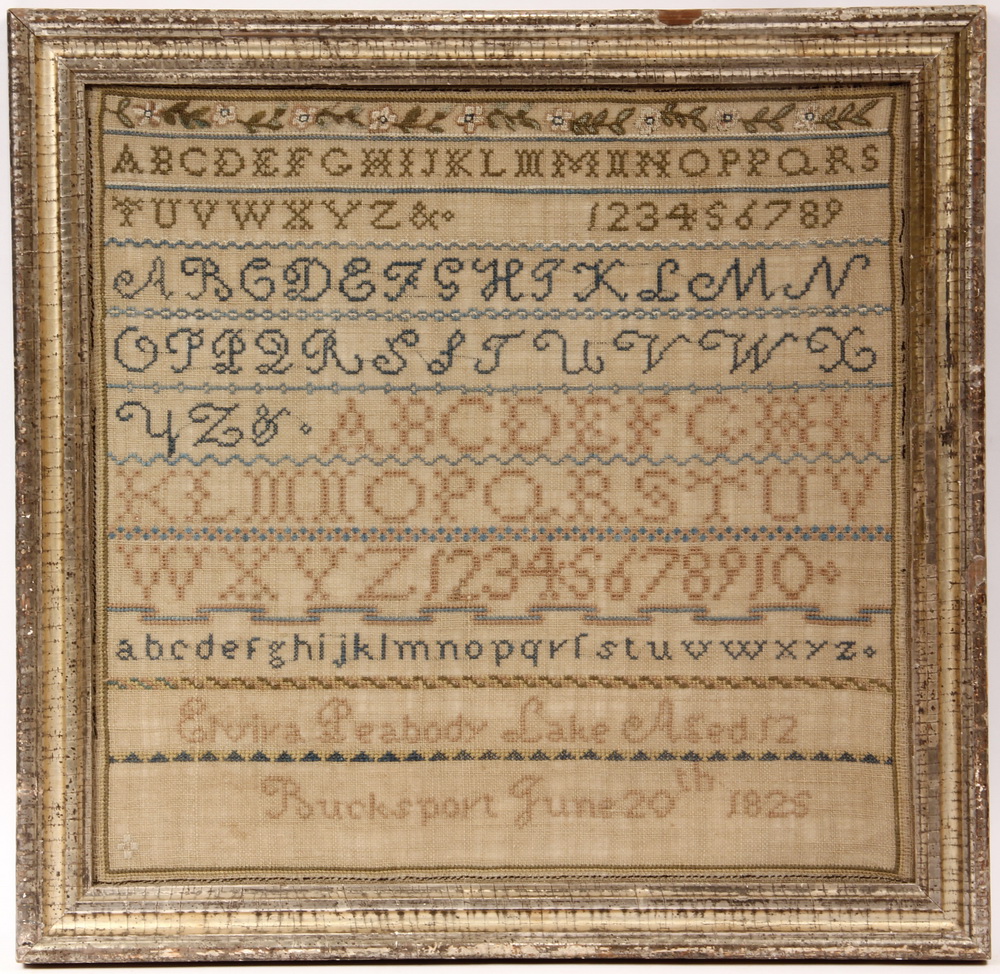 ABCDEFGHIJKLMMNNOPPQRS
TUVWXYZ& 123456789
ABCDEFGHIKLMN
OPPQRSSTUVWX
YZ& ABCDEFGHIJ
KLMNOPQRSTUV
WXYZ12345678910
abcdefghijklmnopqrſstuvwxyz
Elvira Peabody Lake Aged 12
Bucksport June 20th 1825